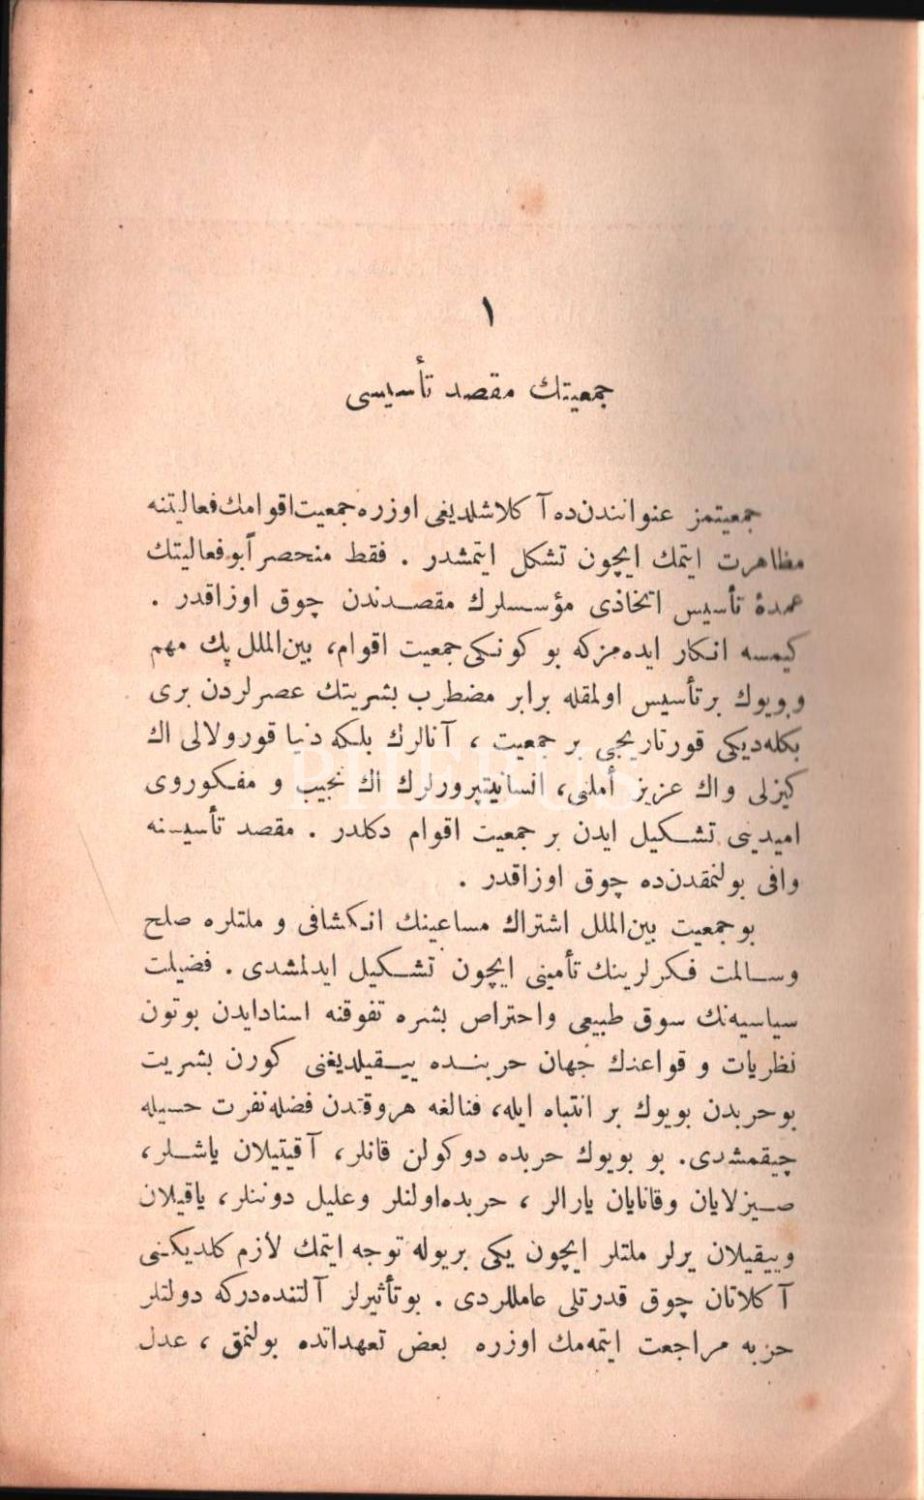 ١
جمعيتك مقصد تأسيسى
جمعيتمز عنوانندن‌ده آكلاشلديغى اوزره جمعيت اقوامك فعاليتنه
مظاهرت ايتمك ايچون تشكل ايتمشدر . فقط منحصراً بو فعاليتك
عمدۀ تأسيس اتخاذى مؤسسلرك مقصدندن چوق اوزاقدر .
كيمسه انكار ايده‌مزكه بو كونكى جمعيت اقوام، بين‌الملل پك مهم
وبويوك بر تأسيس اولمقله برابر مضطرب بشريتك عصرلردن برى
بكله‌ديكى قورتاريجى بر جمعيت ، آنالرك بلكه دنيا قورولالى اك
كيزلى واك عزيز أملنى، انسانيتپرورلرك اك نجيب و مفكوروى
اميدينى تشكيل ايدن بر جمعيت اقوام دكلدر . مقصد تأسيسنه
وافى بولنمقدن‌ده چوق اوزاقدر .
بوجمعيت بين‌الملل اشتراك مساعينك انكشافى و ملتلره صلح
وسالمت فكرلرينك تأمينى ايچون تشكيل ايدلمشدى . فضيلت
سياسيه‌نك سوق طبيعى واحتراص بشره تفوقنه استاد ايدن بوتون
نظريات و قواعدك جهان حربنده ييقيلديغنى كورن بشريت
بوحربدن بويوك بر انتباه ايله، فنالغه هروقتدن فضله نفرت حسيله
چيقمشدى. بو بويوك حربده دوكولن قانلر، آقيتيلان ياشلر،
صيزلايان وقانايان يارالر ، حربده اولنلر وعليل دوننلر، ياقيلان
وييقيلان يرلر ملتلر ايچون يكى بريوله توجه ايتمك لازم كلديكنى
آكلاتان چوق قدرتلى عامللردى . بوتأثيرلر آلتنده‌دركه دولتلر
حربه مراجعت ايتمه‌مك اوزره بعض تعهداتده بولنمق ، عدل
PHEBUS